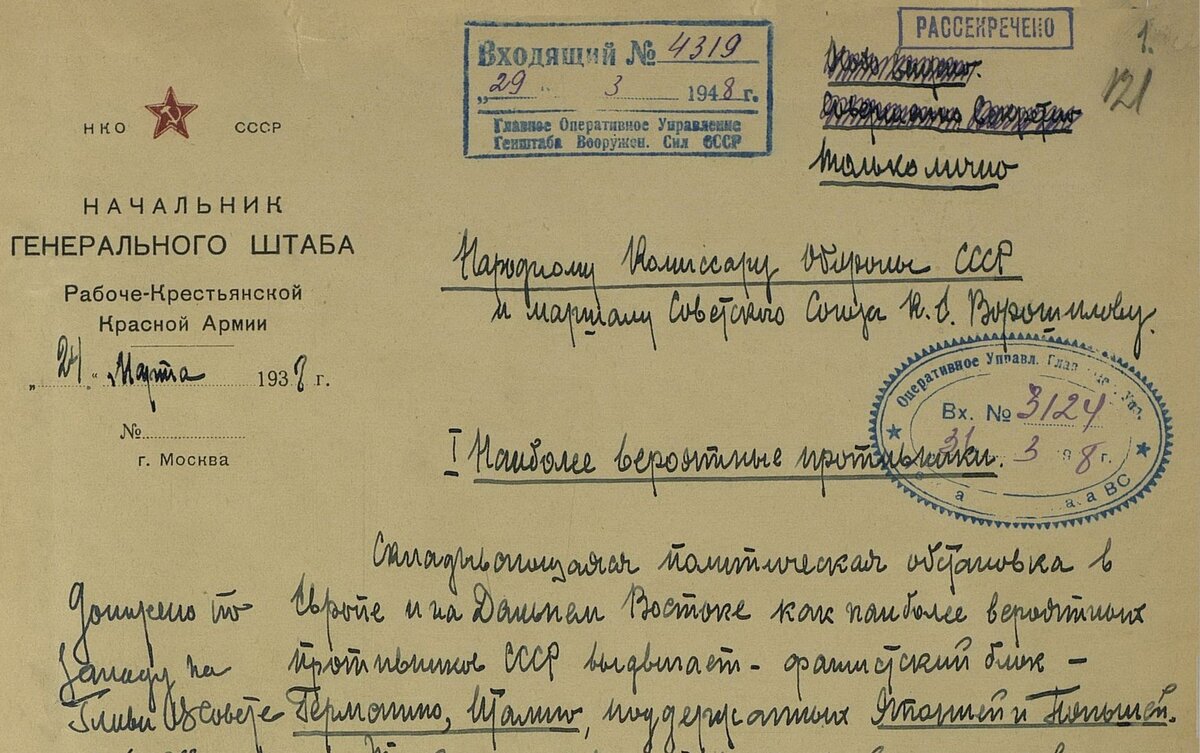 РАССЕКРЕЧЕНО
1.
121
Входящий № 4319
„29“ 3 1948 г.
Главное Оперативное Управление
Генштаба Вооружен. Сил СССР
Совершенно Секретно
только лично
НКО СССР
НАЧАЛЬНИК
ГЕНЕРАЛЬНОГО ШТАБА
Рабоче-Крестьянской
Красной Армии
„24“ Марта 1938 г.
№
г. Москва
Народному Комиссару Обороны СССР
и маршалу Советского Союза К. Е. Ворошилову.
Оперативное Управл. Глав
Вх. № 3124
31 3 8 г.
ВС
I Наиболее вероятные противники.
Складывающаяся политическая обстановка в
Европе и на Дальнем Востоке как наиболее вероятных
противников СССР выдвигает - фашистский блок -
Германию, Италию, поддержанных Японией и Польшей.
Доложено по
Западу на
Совете